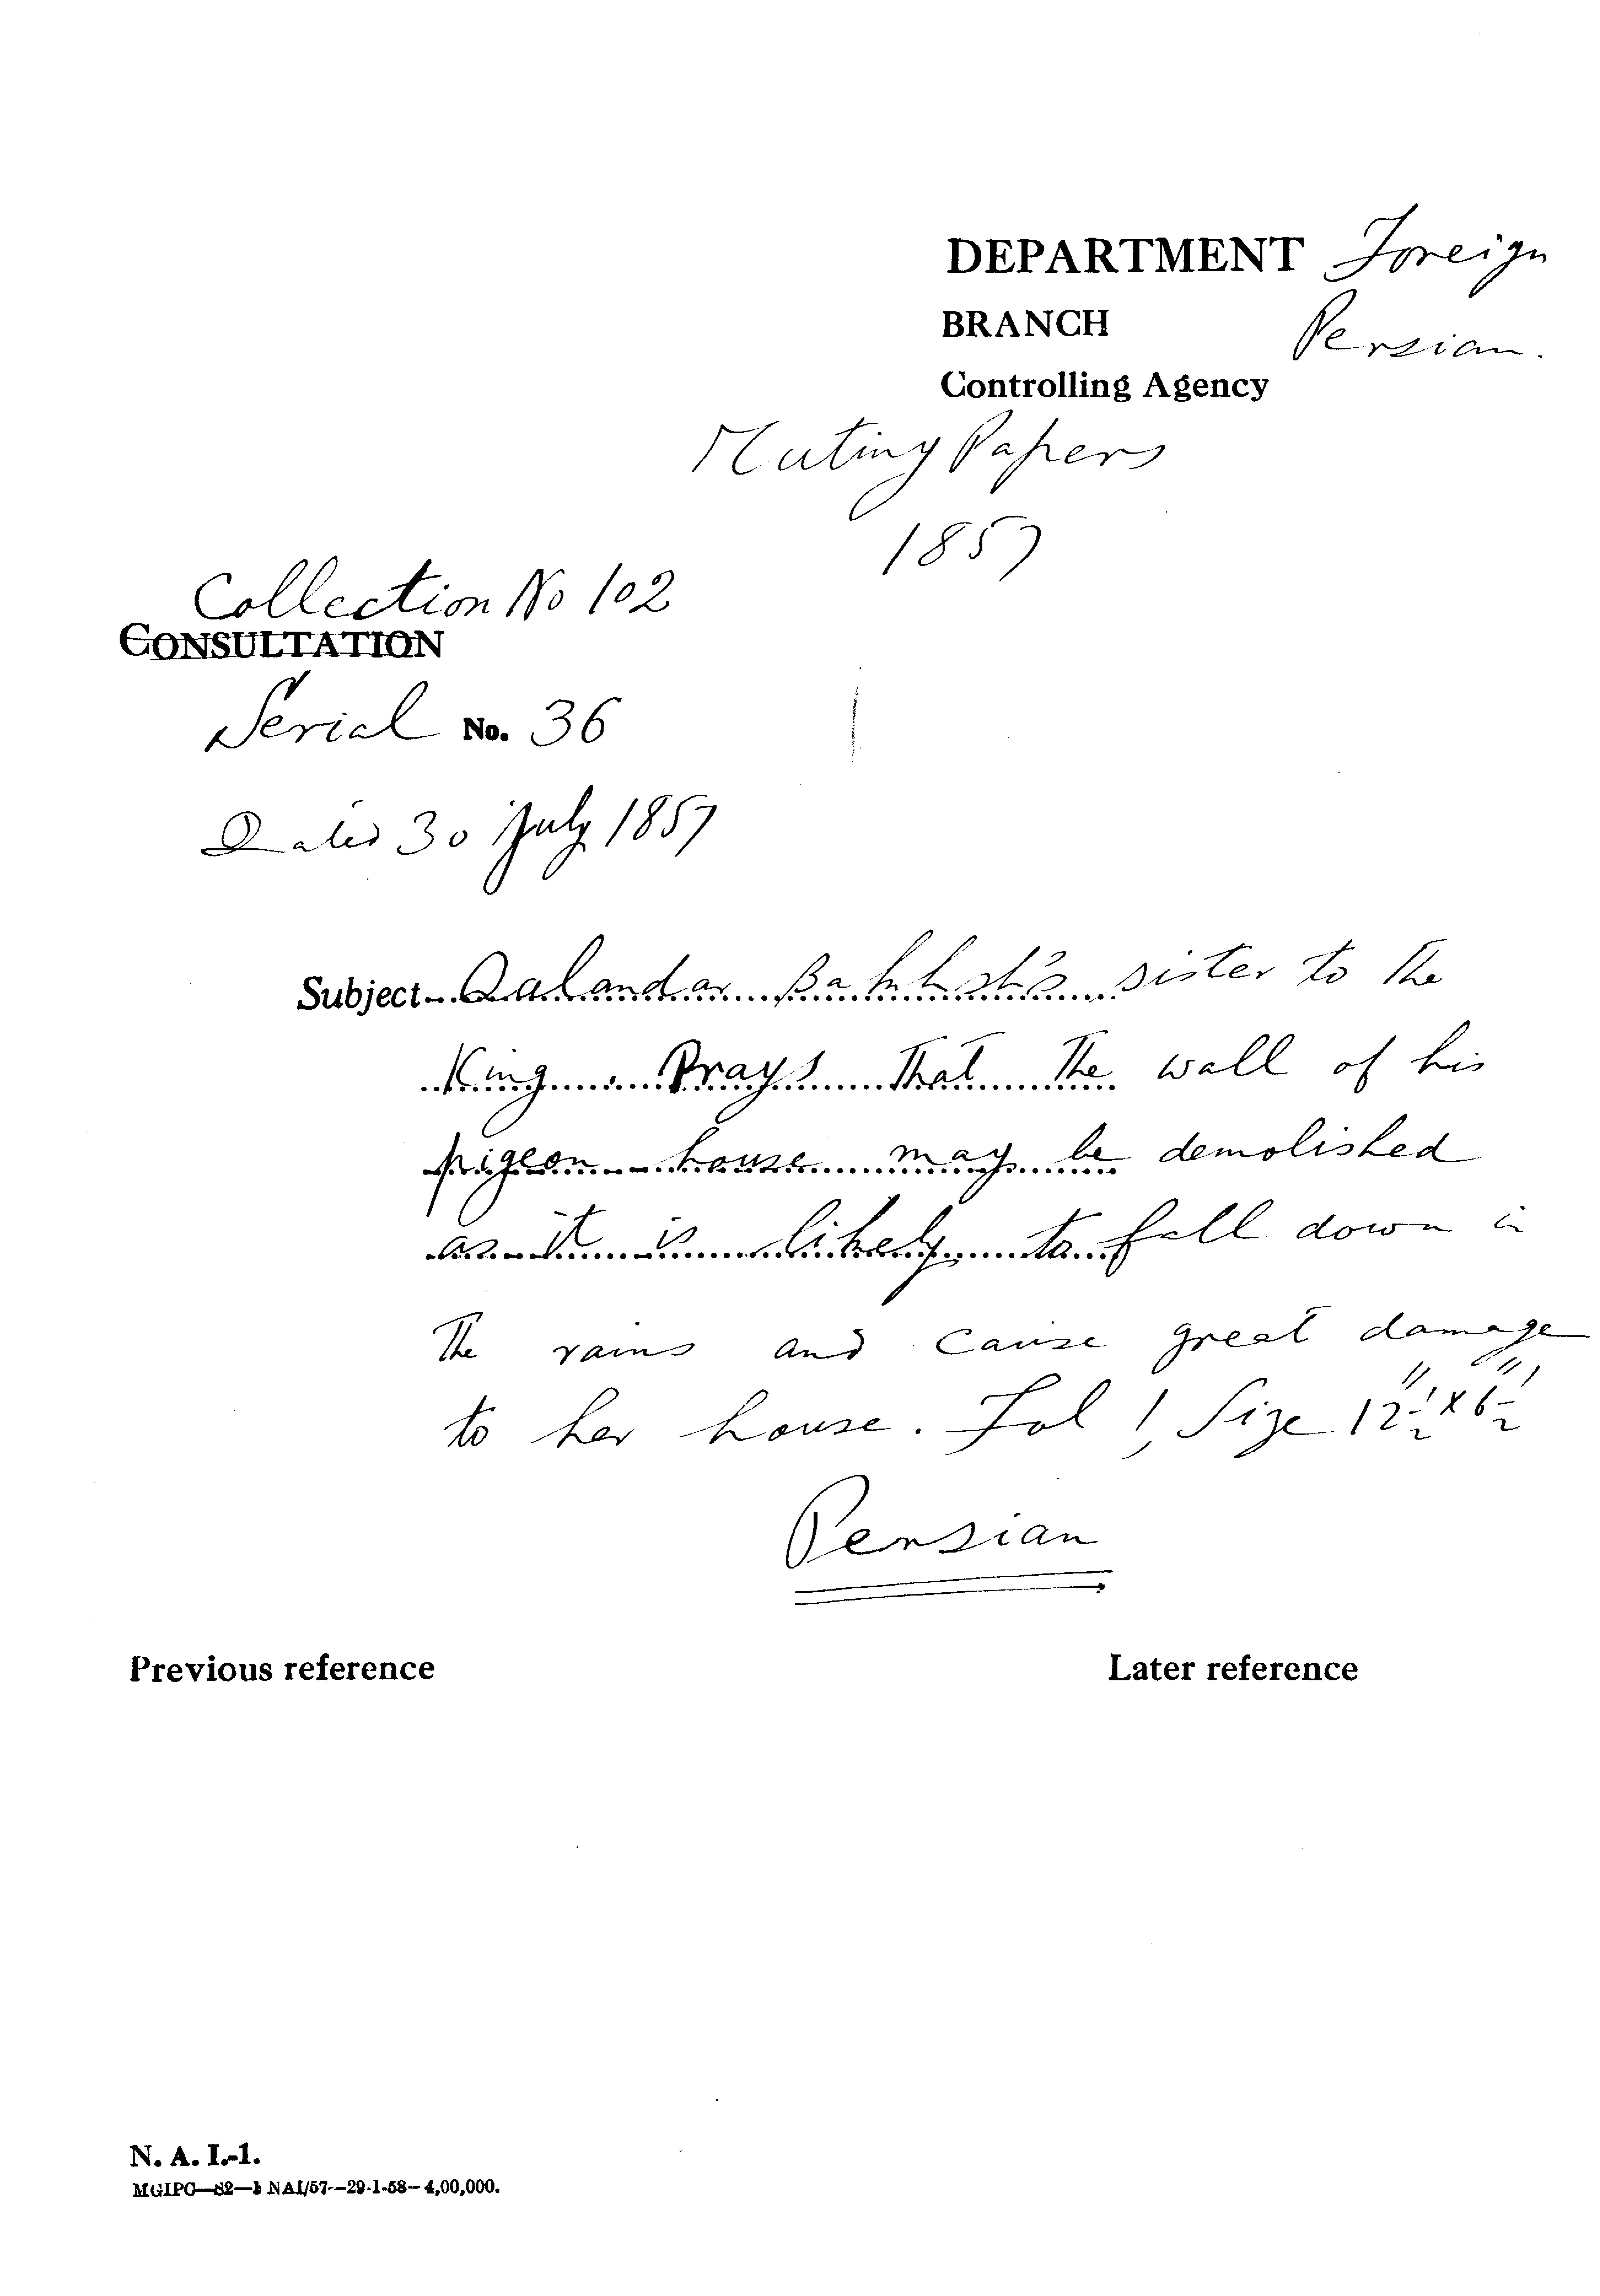 DEPARTMENT Foreign
BRANCH Persian.
Controlling Agency
Mutiny Papers
1857
Collection No 102
CONSULTATION
Serial No. 36
Dated 30 July 1857
Subject Qalandar Bakhsh's sister to the
King. Prays that the wall of his
pigeon house may be demolished
as it is likely to fall down in
the rains and cause great damage
to her house. Fol 1, Size 12½" x 6½"
Persian
Previous reference Later reference
N. A. I.-1.
MGIPC—S2—1 NAI/57—29-1-58—4,00,000.